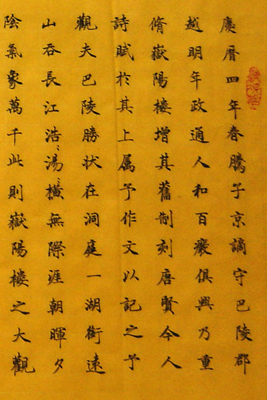 慶曆四年春騰子京謫守巴陵郡
越明年政通人和百廢俱興乃重
脩嶽陽樓增其舊制刻唐賢今人
詩賦於其上属予作文以記之予
觀夫巴陵勝状在洞庭一湖銜遠
山吞長江浩〻湯〻橫無際涯朝暉夕
陰氣象萬千此則嶽陽樓之大觀